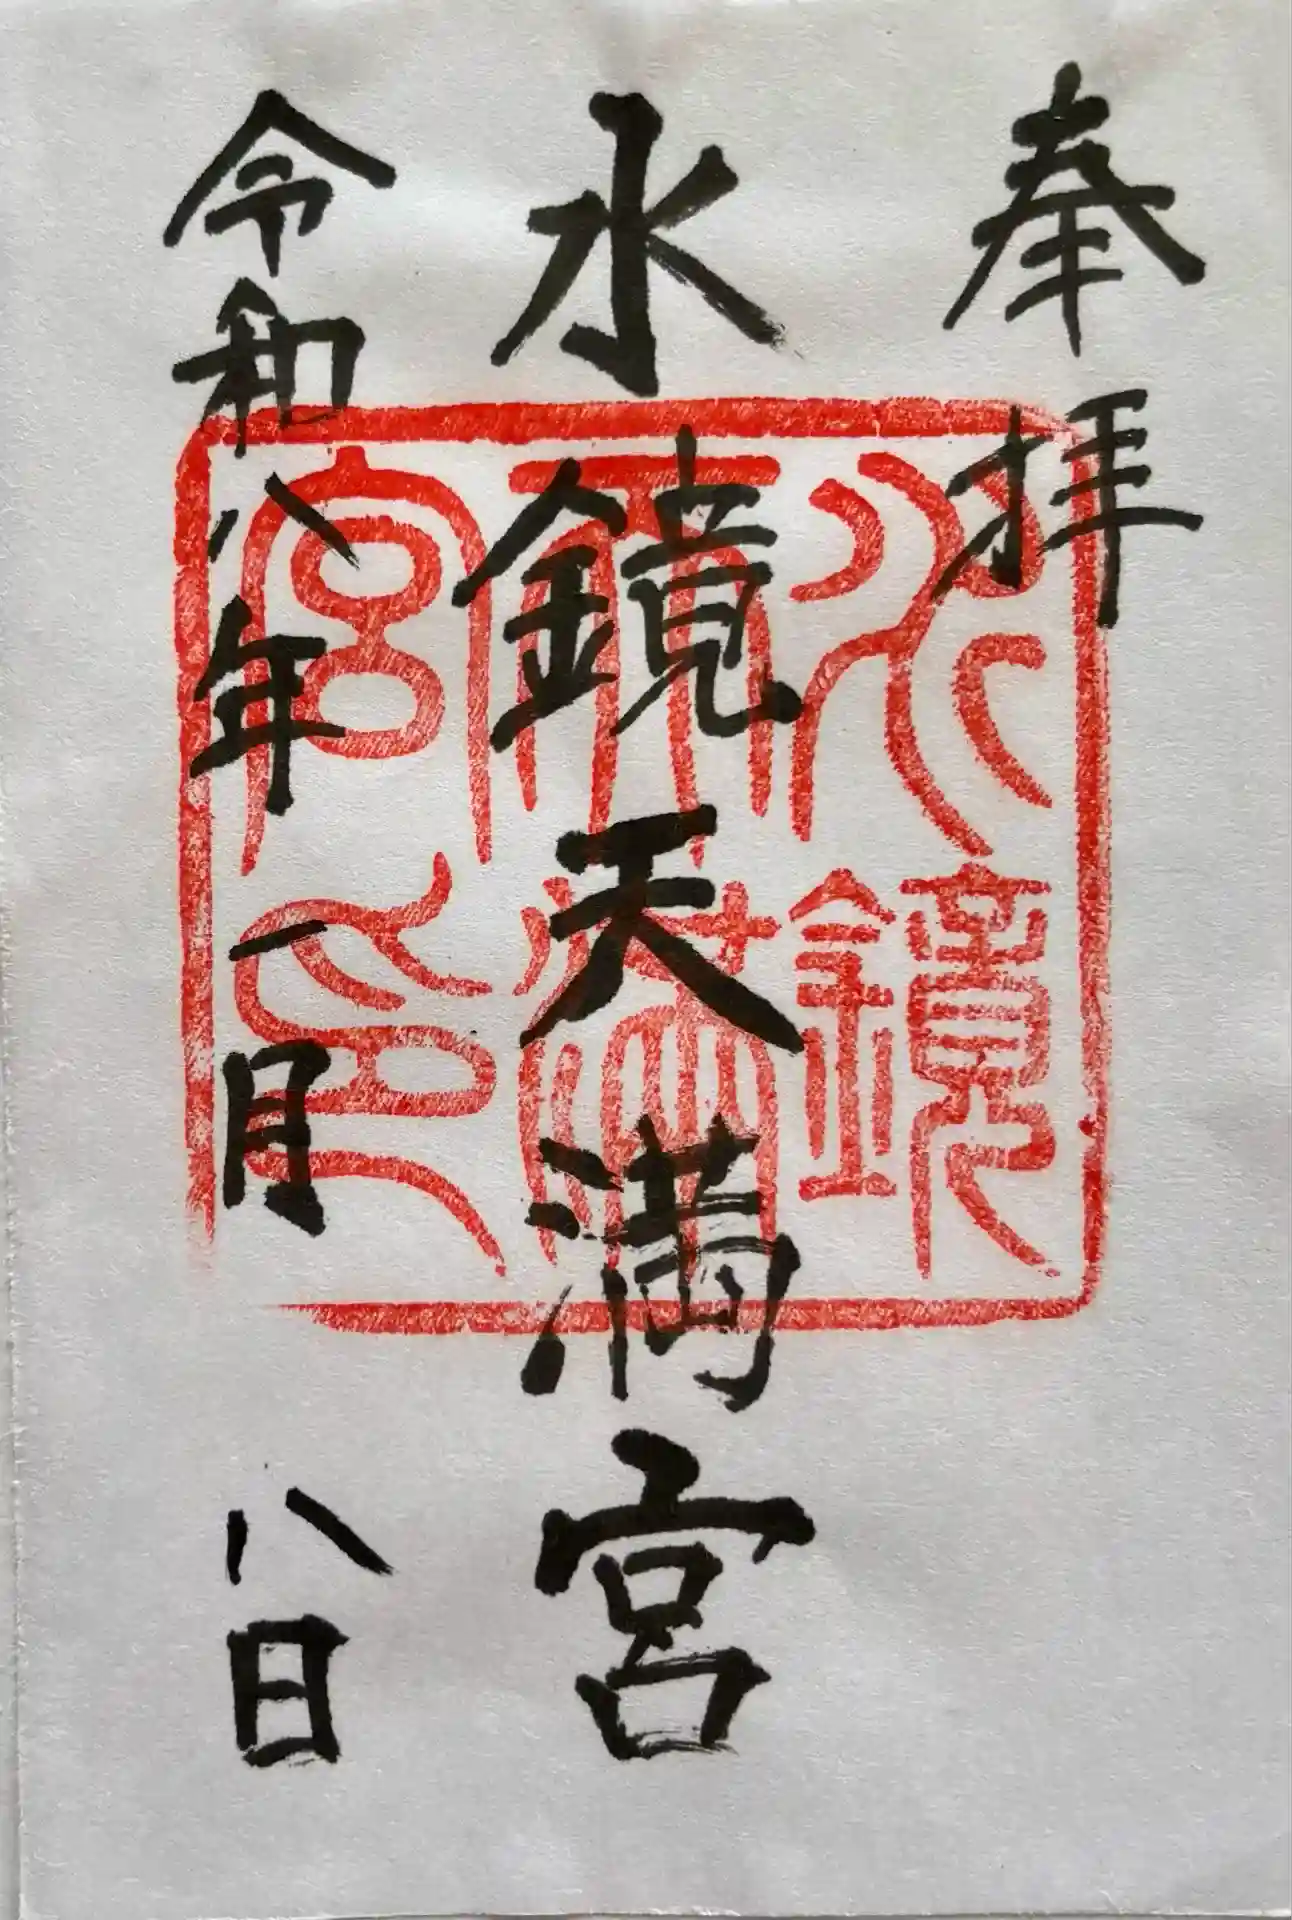 奉拝
水鏡天満宮
令和八年一月八日
水鏡
天満
宮印